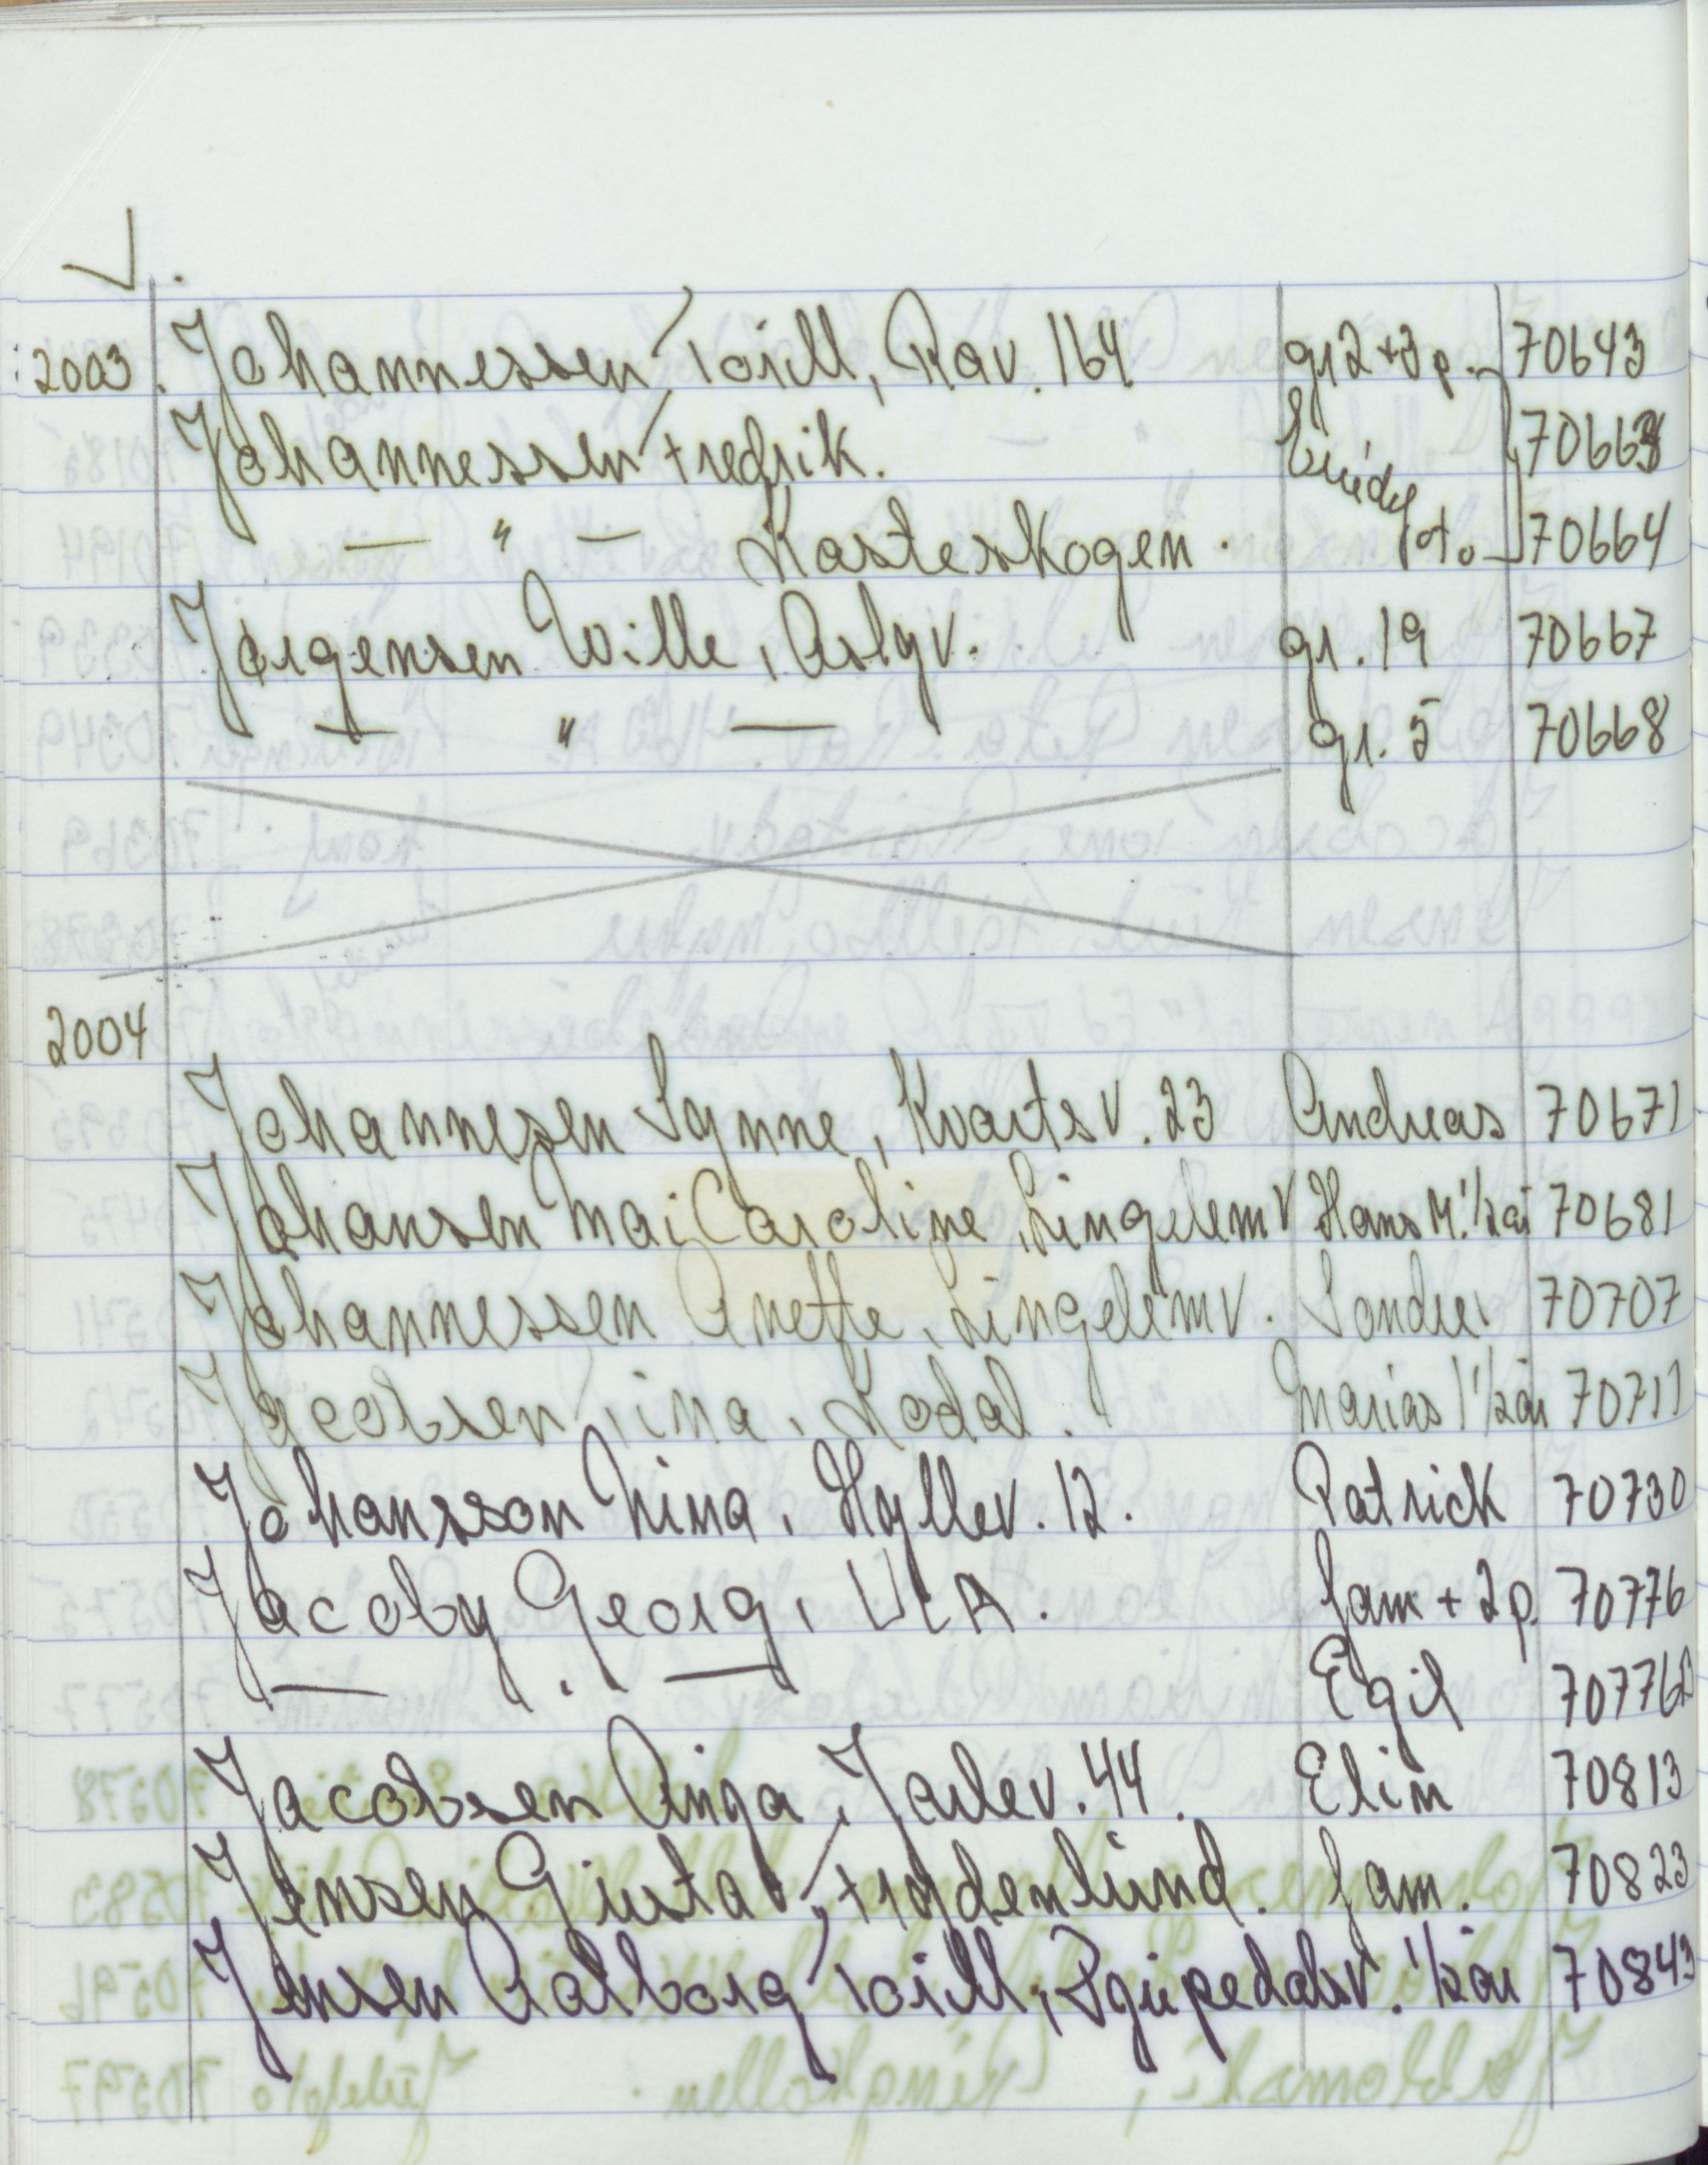 J.
2003. Johannessen Torill, Rav. 164 gr 2 + 2 p. 70643
Johannessen Fredrik. 70663
— " — Kasteskogen. foto 70664
Jørgensen Wille, Aslgv. gr. 19 70667
— " — gr. 5 70668
2004
Johannesen Synne, Kvartsv. 23 Andreas 70671
Johansen Mai Caroline, Lingelemv Hans M. 1/2 år 70681
Johannessen Anette, Lingelemv. Sondre 70707
Jacobsen Tina, Kodal. Marias 1 1/2 år 70711
Johansson Nina, Hyllev. 12. Patrick 70730
Jacoby Georg, USA. fam + 2 p. 70776
— " — Egil 70776B
Jacobsen Anga, Jarlev. 44. Elin 70813
Jensen Gustav, Frydenlund. fam. 70823
Jensen Aalborg Torill, 1/2 år 70843